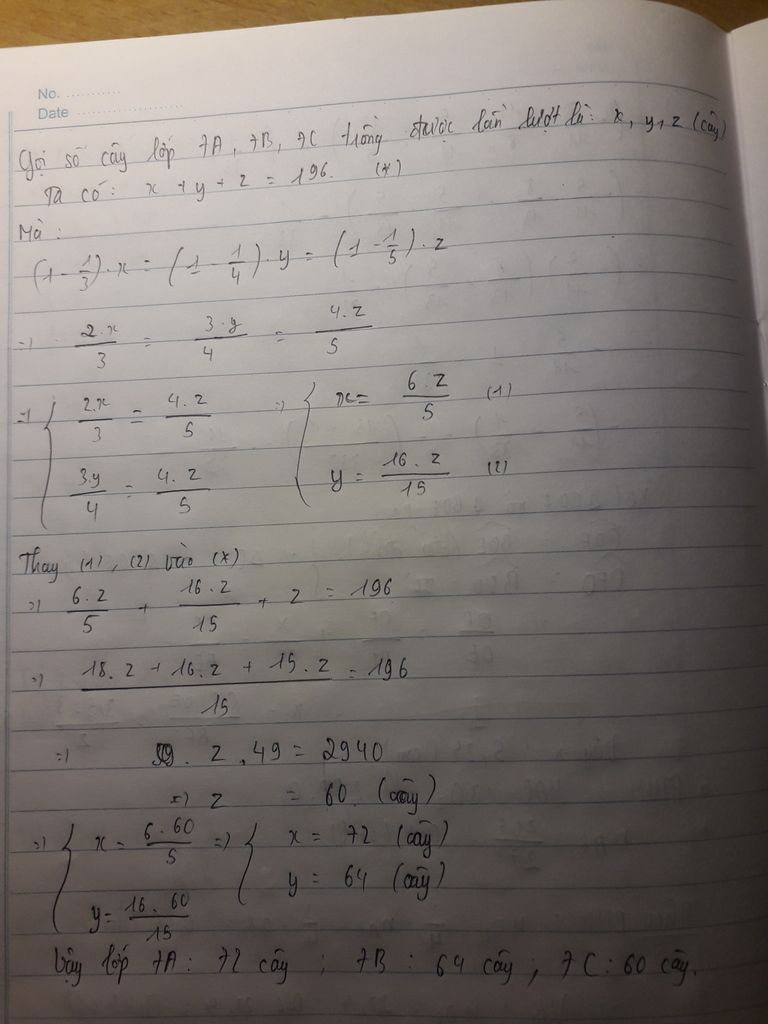 No. ...........
Date .....................
Gọi số cây lớp 7A, 7B, 7C trồng được lần lượt là: x, y, z (cây)
Ta có: x + y + z = 196. (*)
Mà:
(1 - 1/3) · x = (1 - 1/4) · y = (1 - 1/5) · z
=> 2.x/3 = 3.y/4 = 4.z/5
=> { 2.x/3 = 4.z/5 => { x = 6.z/5 (1)
3.y/4 = 4.z/5 y = 16.z/15 (2)
Thay (1), (2) vào (*)
=> 6.z/5 + 16.z/15 + z = 196
=> (18.z + 16.z + 15.z)/15 = 196
=> z . 49 = 2940
=> z = 60. (cây)
=> { x = 6.60/5 => { x = 72 (cây)
y = 16.60/15 y = 64 (cây)
Vậy lớp 7A: 72 cây ; 7B: 64 cây ; 7C: 60 cây.